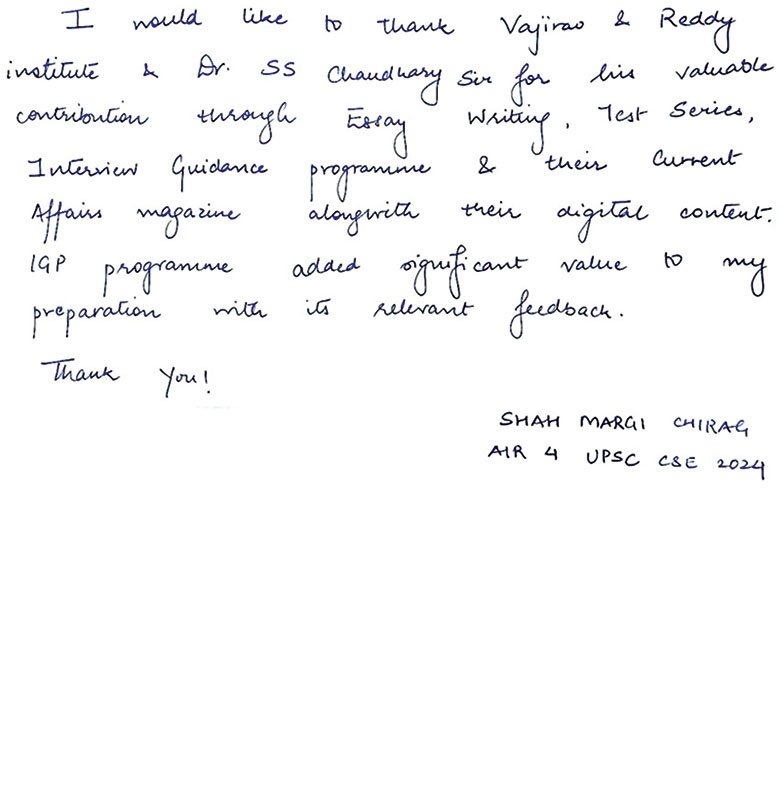 I would like to thank Vajirao & Reddy
institute & Dr. SS Chaudhary Sir for his valuable
contribution through Essay Writing, Test Series,
Interview Guidance programme & their Current
Affairs magazine alongwith their digital content.
IGP programme added significant value to my
preparation with its relevant feedback.
Thank You!
SHAH MARGI CHIRAG
AIR 4 UPSC CSE 2024